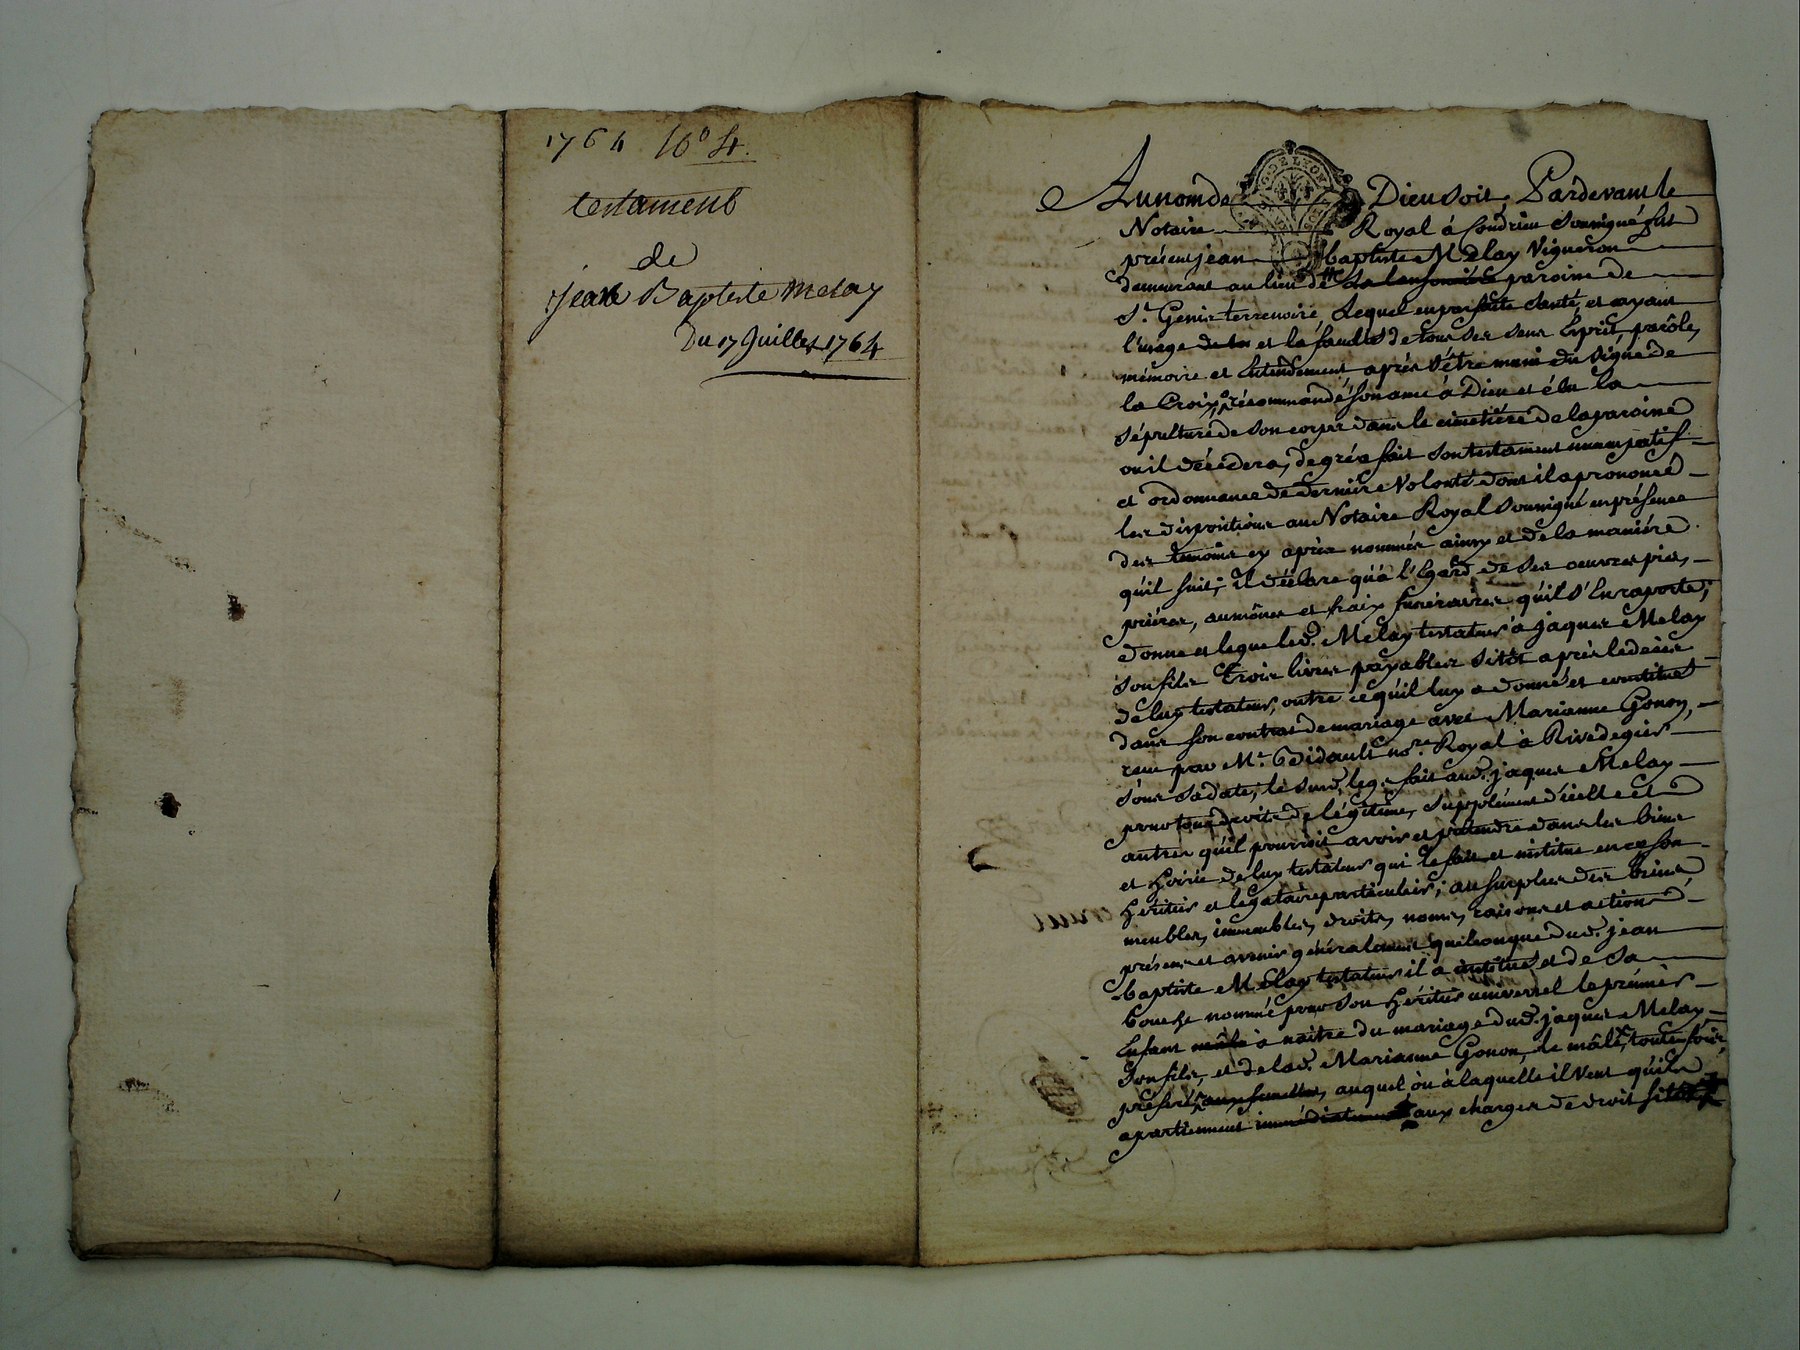 1764 No 4.
testament
de
jean Baptiste melay
Du 17 Juillet 1764
G. DE LYON
Au nom de Dieu soit, Pardevant le
Notaire Royal à Condrieu soussigné fut
présent jean baptiste Melay Vigneron
demeurant au lieu de paroisse de
St. Genis terrenoire, Lequel en parfaite santé, et ayant
l'usage de et la faculté de tous ses sens Esprit, parôle,
mémoire et Entendement après s'être muni du signe de
la Croix, récommandé son ame à Dieu et élu la
sépulture de son corps dans le cimetière de la paroisse
ou il décédera, de gré a fait son testament nuncupatif
et ordonnance de derniere Volonté dont il a prononcé
les dispositions au Notaire Royal soussigné en présence
des témoins cy après nommés ainsy et de la manière
qu'il suit; il déclare qu'à l'Egard de ses oeuvres pies,
priéres, aumônes et fraix funéraires qu'il s'En raporte;
donne et legue led. Melay testateur à jaques Melay
son fils Trois livres payables sitôt après le decès
de luy testateur, outre ce qu'il luy a donné et constitué
dans son contrat de mariage avec Marianne Gonon,
reçu par Me. Didault nore. Royal à Rivedegier
sous sa date, le susd. legs fait aud. jaques Melay
pour tous droits de légitime, supplément d'icelle et
autres qu'il pourroit avoir et prétendre dans les biens
et hoirie de luy testateur qui le fait et institue en ce son
héritier et légataire particulier; au surplus des biens
meubles, immeubles, droits, noms, raisons et actions
présens et avenir généralement quelconques dud. jean
baptiste Melay testateur il a institué et de sa
bouche nommé pour son héritier universel le prémier
Enfant mâle à naître du mariage dud. jaques Melay
son fils, et de lad. Marianne Gonon, le mâle toutefois,
préféré aux femelles, auquel ou à laquelle il Veut qu'ils
apartiennent immédiatement aux charges de droit